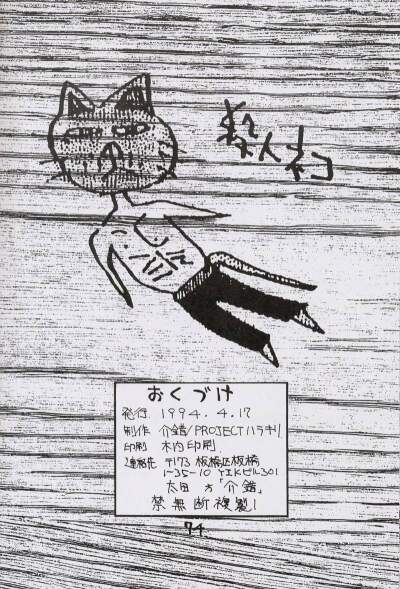 殺人
ネコ
おくづけ
発行 1994.4.17
制作 介錯/PROJECTハラキリ
印刷 木内印刷
連絡先 〒173 板橋区板橋
1-35-10 YIKビル301
太田 方「介錯」
禁無断複製!
74